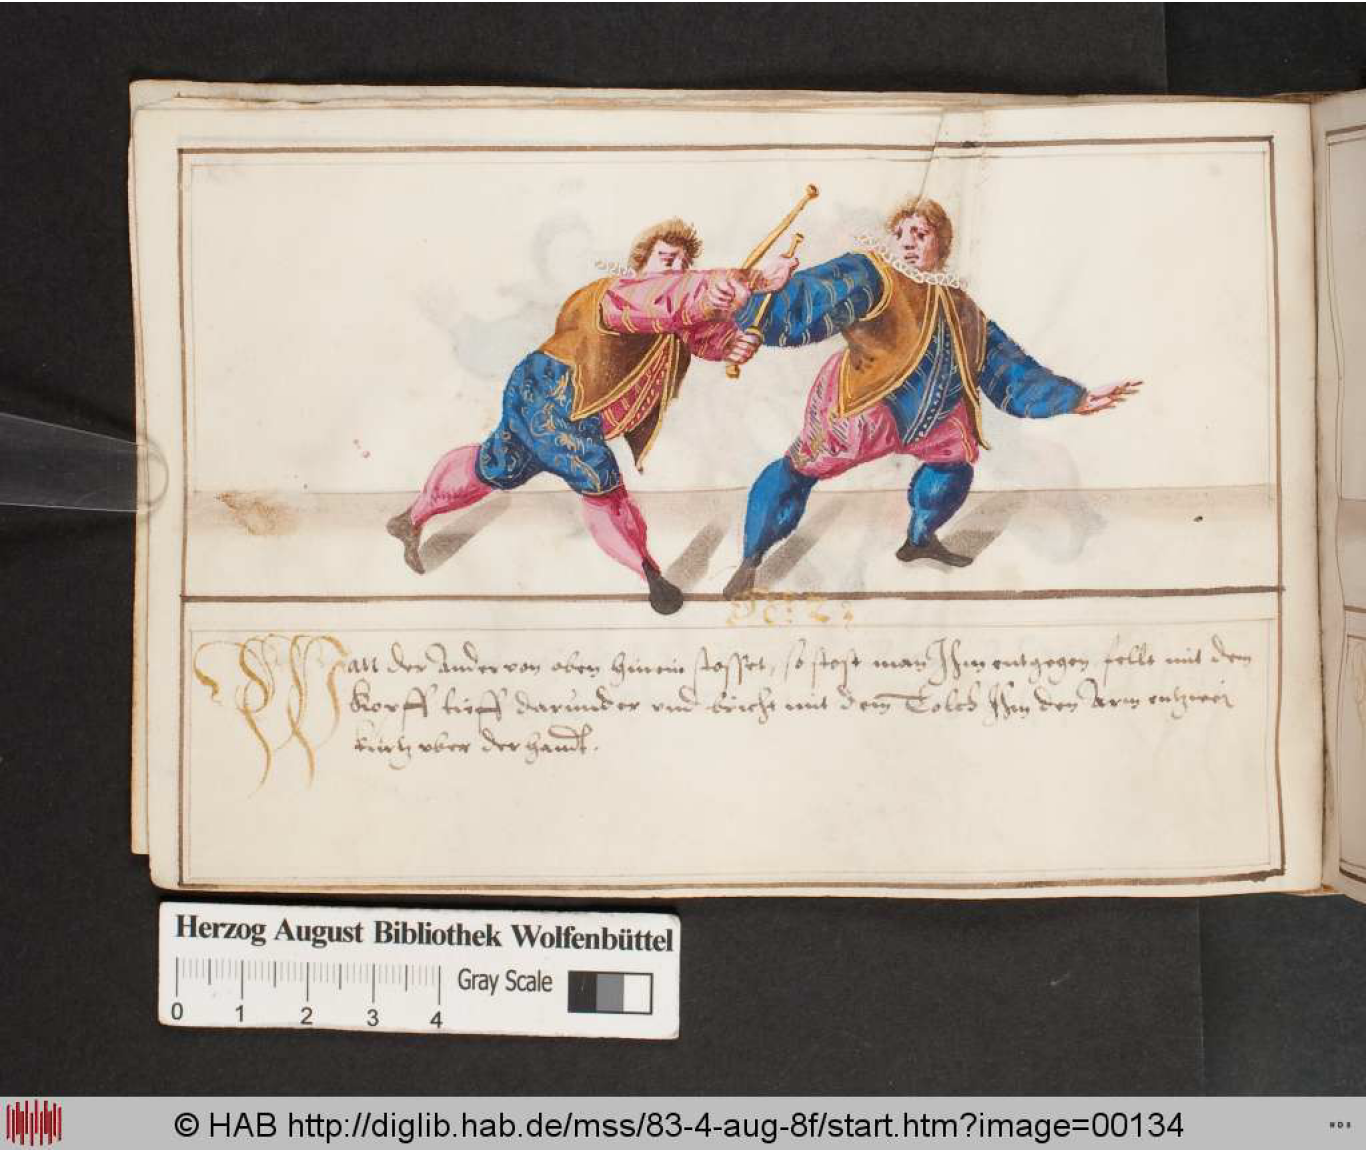 Wan der Ander von oben hinein stosset, so stost man Ihm entgegen, fellt mit dem
Kopff tieff darunder vnd bricht mit dem Tolch Ihm den Arm entzwei
kurtz vber der handt.
Herzog August Bibliothek Wolfenbüttel
Gray Scale
0 1 2 3 4
© HAB http://diglib.hab.de/mss/83-4-aug-8f/start.htm?image=00134